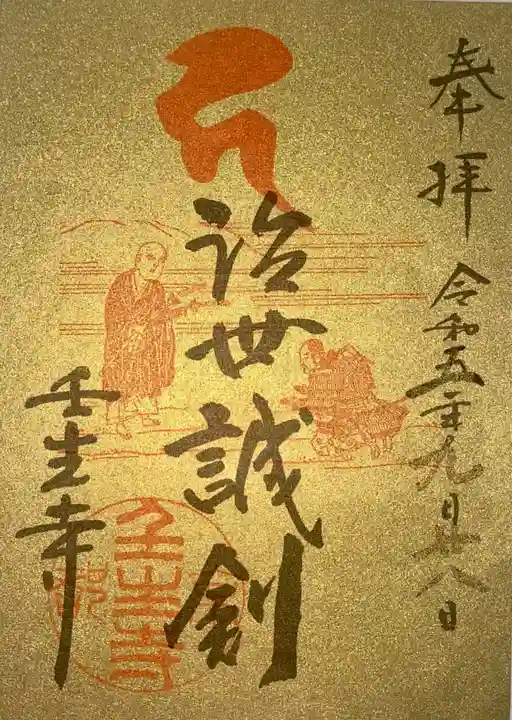 奉拝
令和五年九月廿八日
誠世誠剣
壬生寺
壬生寺